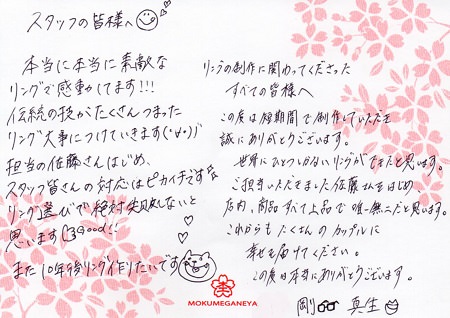 スタッフの皆様へ
本当に本当に素敵な
リングで感動してます!!!
伝統の技がたくさんつまった
リング大事につけていきます(･∀･)ﾉﾞ
担当の佐藤さんはじめ、
スタッフ皆さんの対応はピカイチです
リング選びで絶対失敗しないと
思います Good!!
また10年後リング作りたいです
リングの制作に関わってくださった
すべての皆様へ
この度は短期間で制作していただき
誠にありがとうございます。
世界にひとつしかないリングができたと思います。
ご担当いただきました佐藤さんをはじめ、
店内、商品すべて上品で唯一無二だと思います。
これからもたくさんのカップルに
幸せを届けてください。
この度は本当にありがとうございます。
剛 真生
MOKUMEGANEYA